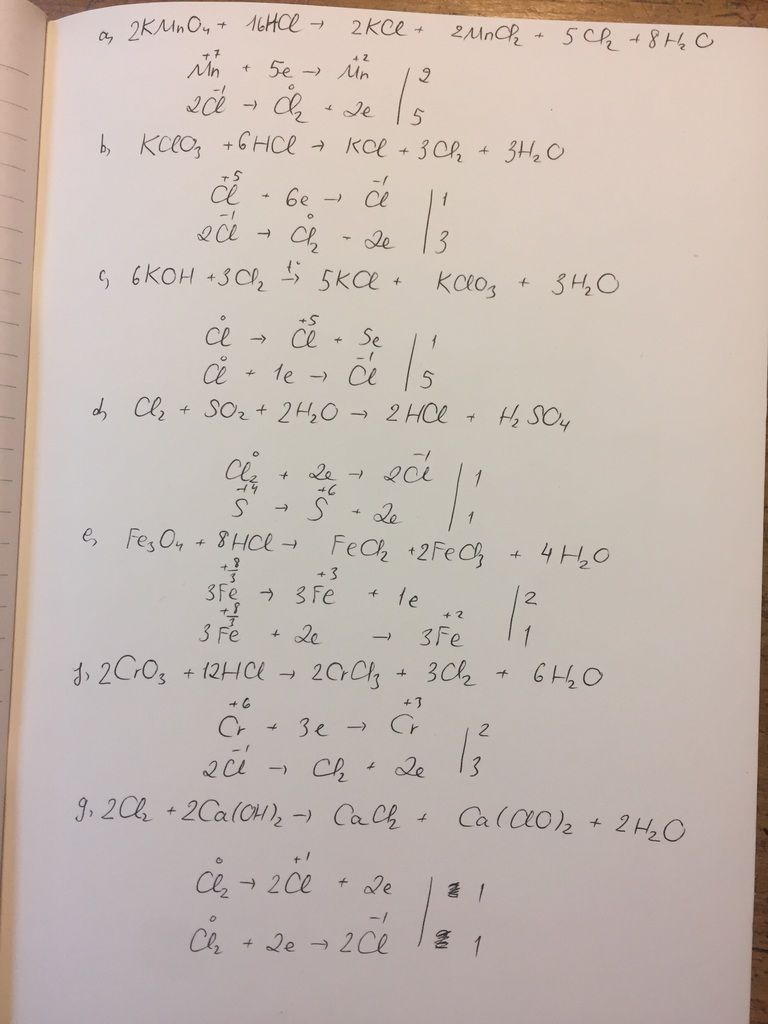 a, 2KMnO₄ + 16HCl → 2KCl + 2MnCl₂ + 5Cl₂ + 8H₂O
+7 +2
Mn + 5e → Mn | 2
-1 0
2Cl → Cl₂ + 2e | 5
b, KClO₃ + 6HCl → KCl + 3Cl₂ + 3H₂O
+5 -1
Cl + 6e → Cl | 1
-1 0
2Cl → Cl₂ - 2e | 3
c, 6KOH + 3Cl₂ t° → 5KCl + KClO₃ + 3H₂O
0 +5
Cl → Cl + 5e | 1
0 -1
Cl + 1e → Cl | 5
d, Cl₂ + SO₂ + 2H₂O → 2HCl + H₂SO₄
0 -1
Cl₂ + 2e → 2Cl | 1
+4 +6
S → S + 2e | 1
e, Fe₃O₄ + 8HCl → FeCl₂ + 2FeCl₃ + 4H₂O
+8/3 +3
3Fe → 3Fe + 1e | 2
+8/3 +2
3Fe + 2e → 3Fe | 1
f, 2CrO₃ + 12HCl → 2CrCl₃ + 3Cl₂ + 6H₂O
+6 +3
Cr + 3e → Cr | 2
-1
2Cl → Cl₂ + 2e | 3
g, 2Cl₂ + 2Ca(OH)₂ → CaCl₂ + Ca(ClO)₂ + 2H₂O
0 +1
Cl₂ → 2Cl + 2e | 1
0 -1
Cl₂ + 2e → 2Cl | 1